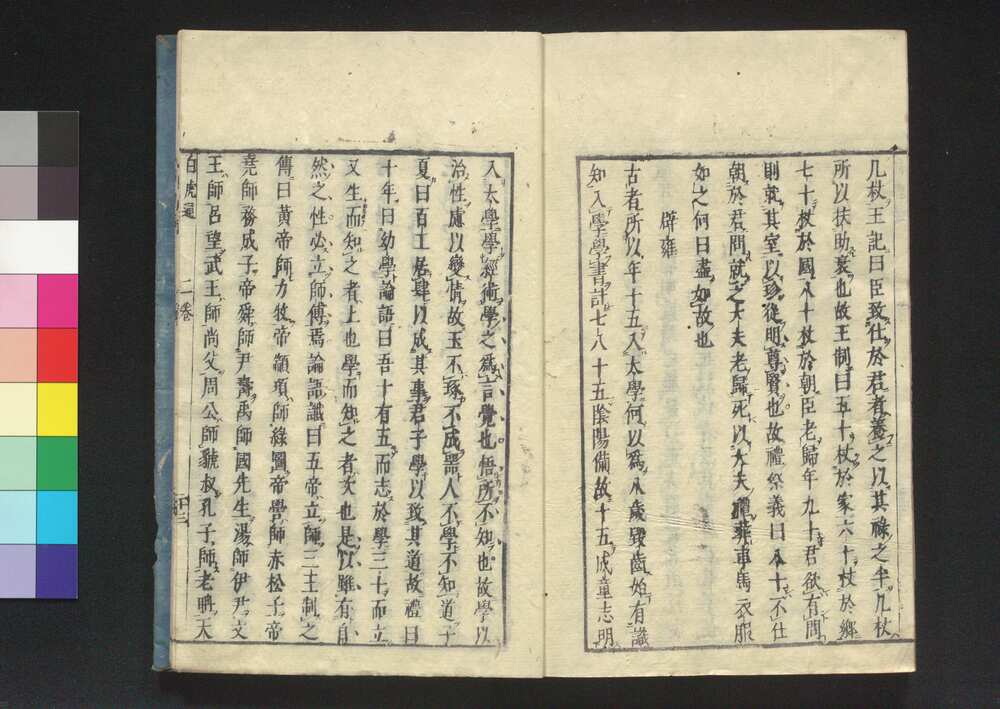 几杖王記曰臣致仕於君者養之以其祿之半几杖
所以扶助衰也故王制曰五十杖於家六十杖於鄉
七十杖於國八十杖於朝臣老歸年九十君欲有問
則就其室以珍從明尊賢也故禮祭義曰八十不仕
朝於君問就之大夫老歸死以大夫禮葬車馬衣服
如之何曰盡如故也
辟雍
古者所以年十五入大學何以為八歲毀齒始有識
知入學學書計七八十五陰陽備故十五成童志明
入太學學經術學之為言覺也悟所不知也故學以
治性慮以變情故玉不琢不成器人不學不知道子
夏曰百工居肆以成其事君子學以致其道故禮曰
十年曰幼學論語曰吾十有五而志於學三十而立
又生而知之者上也學而知之者次也是以雖有自
然之性必立師傅焉論語讖曰五帝立師三王制之
傳曰黃帝師力牧帝顓頊師綠圖帝嚳師赤松子帝
堯師務成子帝舜師尹壽禹師國先生湯師伊尹文
王師呂望武王師尚父周公師虢叔孔子師老聃天
白虎通 二卷